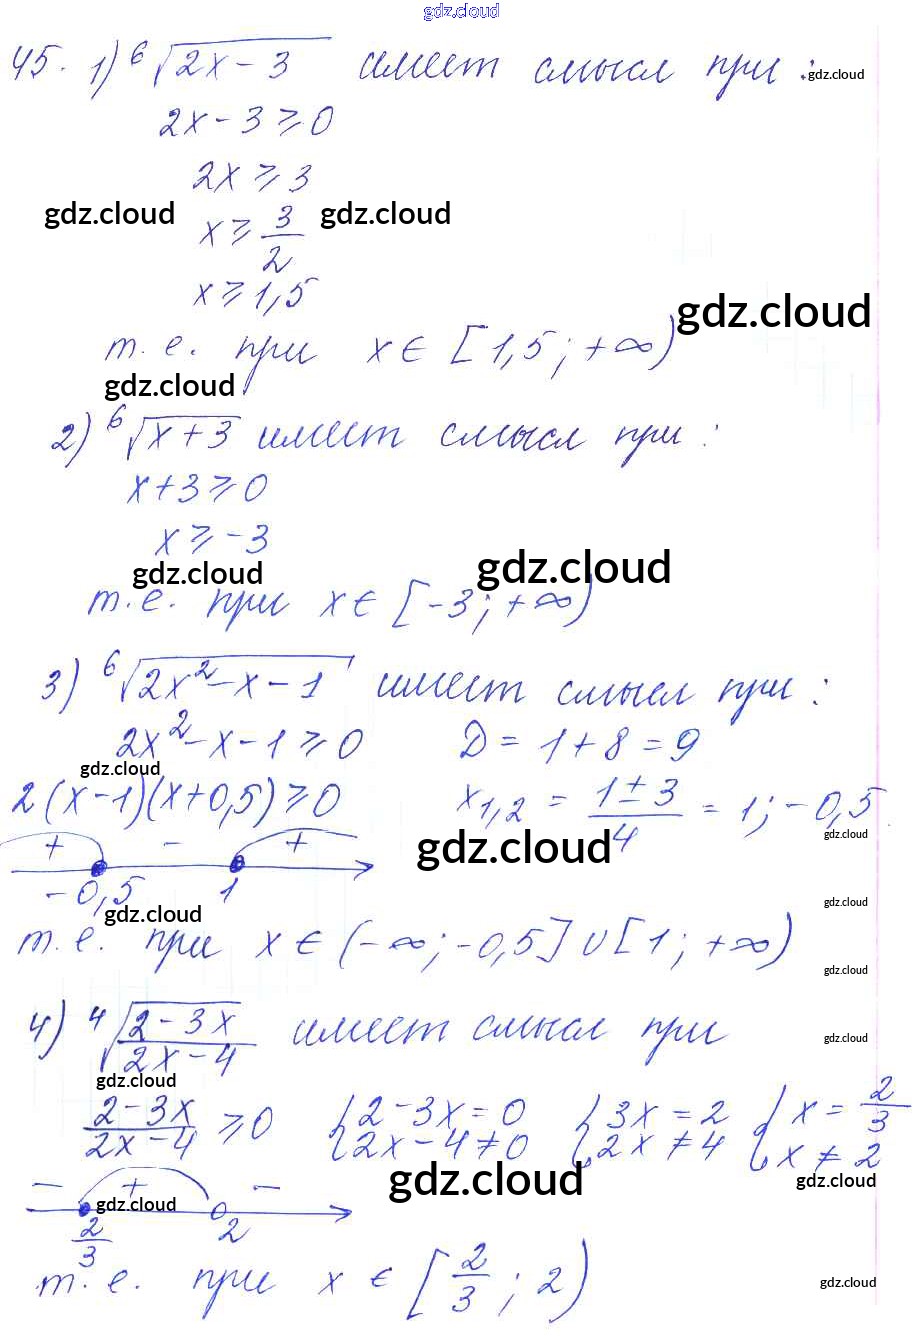 gdz.cloud
45. 1) ⁶√(2x-3) имеет смысл при: gdz.cloud
2x-3⩾0
2x⩾3
gdz.cloud x⩾3/2 gdz.cloud
x⩾1,5
gdz.cloud
т.е. при x∈[1,5;+∞)
gdz.cloud
2) ⁶√(x+3) имеет смысл при:
x+3⩾0
x⩾-3
gdz.cloud gdz.cloud
т.е. при x∈[-3;+∞)
3) ⁶√(2x²-x-1) имеет смысл при:
2x²-x-1⩾0 D=1+8=9
gdz.cloud
2(x-1)(x+0,5)⩾0 x₁,₂ = (1±3)/4 = 1;-0,5
gdz.cloud
+ - + gdz.cloud
-0,5 1 gdz.cloud
gdz.cloud
т.е. при x∈(-∞;-0,5]∪[1;+∞)
gdz.cloud
4) ⁴√((2-3x)/(2x-4)) имеет смысл при gdz.cloud
gdz.cloud
(2-3x)/(2x-4) ⩾0 {2-3x=0 {3x=2 {x=2/3
{2x-4≠0 {2x≠4 {x≠2
gdz.cloud gdz.cloud
- + -
gdz.cloud
2/3 2
т.е. при x∈[2/3;2) gdz.cloud